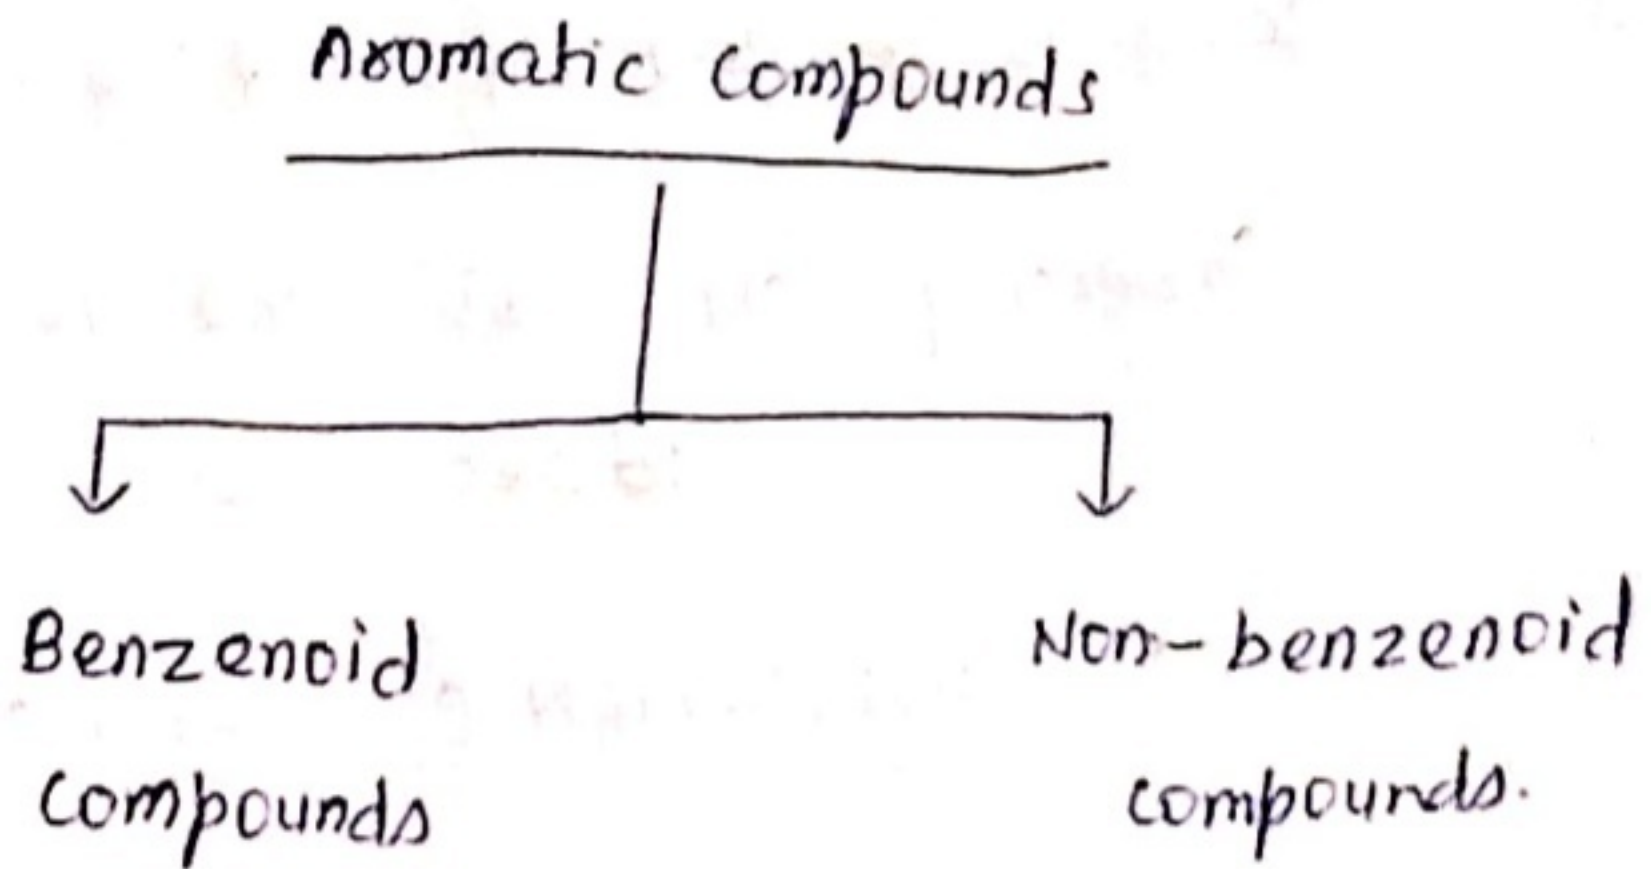 Aromatic Compounds
Benzenoid
Compounds
Non-benzenoid
compounds.